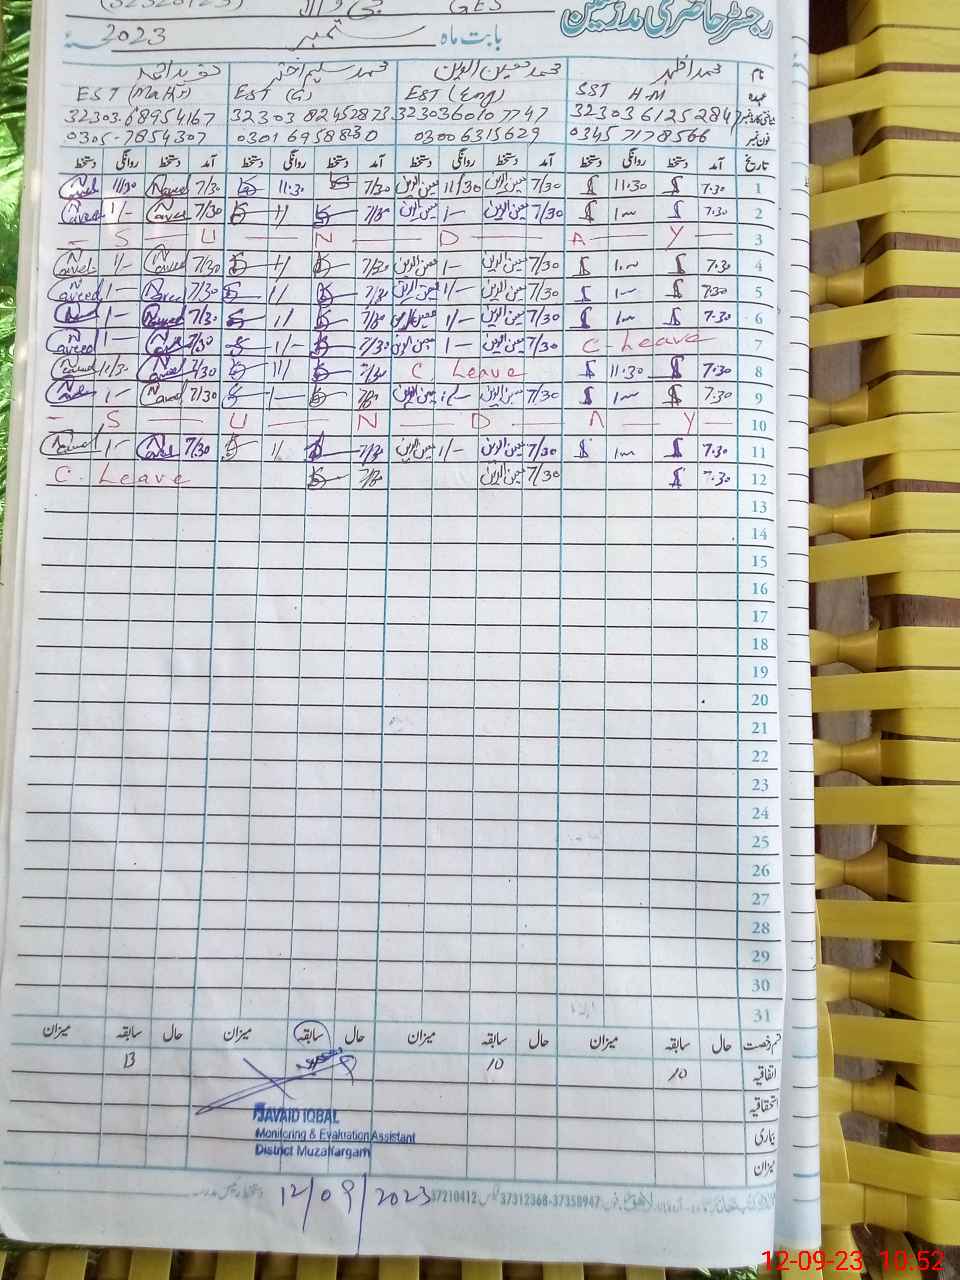 رجسٹر حاضری مدرسین
بابت ماہ ستمبر 2023
نام محمد اظہر محمد معین الدین محمد سلیم اختر نوید احمد
عہدہ SST H.M EST (Eng) EST (G) EST (Math)
3230361252847 3230360107747 3230382452873 3230368954167
فون نمبر 03457178566 03006315629 03016958830 0305-7854307
تاریخ آمد دستخط روانگی دستخط آمد دستخط روانگی دستخط آمد دستخط روانگی دستخط آمد دستخط روانگی دستخط
1 7.30 11.30 7/30 معین الدین 11/30 معین الدین 7/30 11:30 7/30 Naveed 11/30 Naveed
2 7.30 1— 7/30 معین الدین 1— معین الدین 7/30 1/ 7/30 Naveed 1/— Naveed
3 — S — U — N — D — A — Y —
4 7.30 1— 7/30 معین الدین 1— معین الدین 7/30 1/ 7/30 Naveed 1/— Naveed
5 7.30 1— 7/30 معین الدین 1/— معین الدین 7/30 1/ 7/30 Naveed 1— Naveed
6 7.30 1— 7/30 معین الدین 1/— معین الدین 7/30 1/ 7/30 Naveed 1— Naveed
7 C. Leave 7/30 معین الدین 1— معین الدین 7/30 1/— 7/30 Naveed 1— Naveed
8 7.30 11.30 C Leave 7/30 11/ 7/30 Naveed 11/30 Naveed
9 7.30 1— 7/30 معین الدین 1/— معین الدین 7/30 1— 7/30 Naveed 1— Naveed
10 — S — U — N — D — A — Y —
11 7.30 1— 7/30 معین الدین 1/— معین الدین 7/30 1/ 7/30 Naveed 1— Naveed
12 7.30 7/30 معین الدین 7/30 C. Leave
13
14
15
16
17
18
19
20
21
22
23
24
25
26
27
28
29
30
31
قسم رخصت حال سابقہ میزان حال سابقہ میزان حال سابقہ میزان حال سابقہ میزان
اتفاقیہ 10 10 13
استحقاقیہ
بیماری
میزان
JAVAID IQBAL
Monitoring & Evaluation Assistant
District Muzaffargarh
12/09/2023
37210412 37312368-37358947
12-09-23 10:52